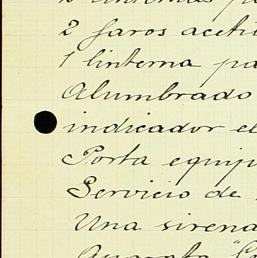 2 faros aceti
1 linterna pa
Alumbrado
indicador el
Porta equip
Servicio de
Una sirena